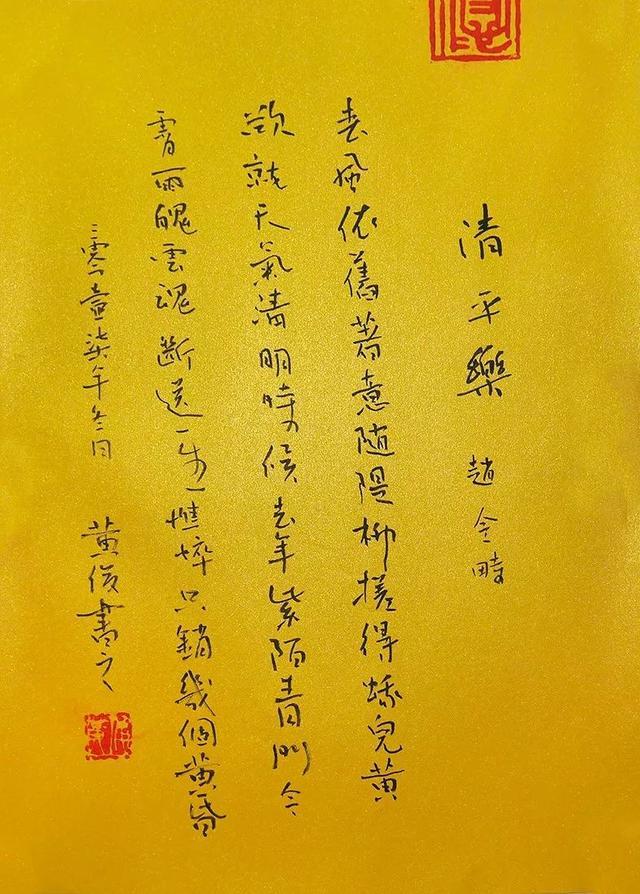 清平樂 趙令畤
春風依舊著意隨隄柳搓得蛾兒黃
欲就天氣清明時候去年紫陌青門今
霄雨魄雲魂斷送一生憔悴只銷幾個黃昏
二零壹柒年冬月 黃俊書之